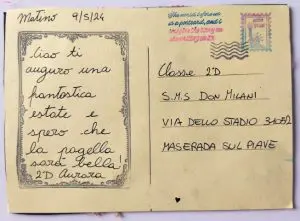 Matino 9/5/24
Ciao ti
auguro una
fantastica
estate e
spero che
la pagella
sarà bella!
2D Aurora
Classe 2D
S.M.S DON MILANI
VIA DELLO STADIO 31052
MASERADA SUL PIAVE